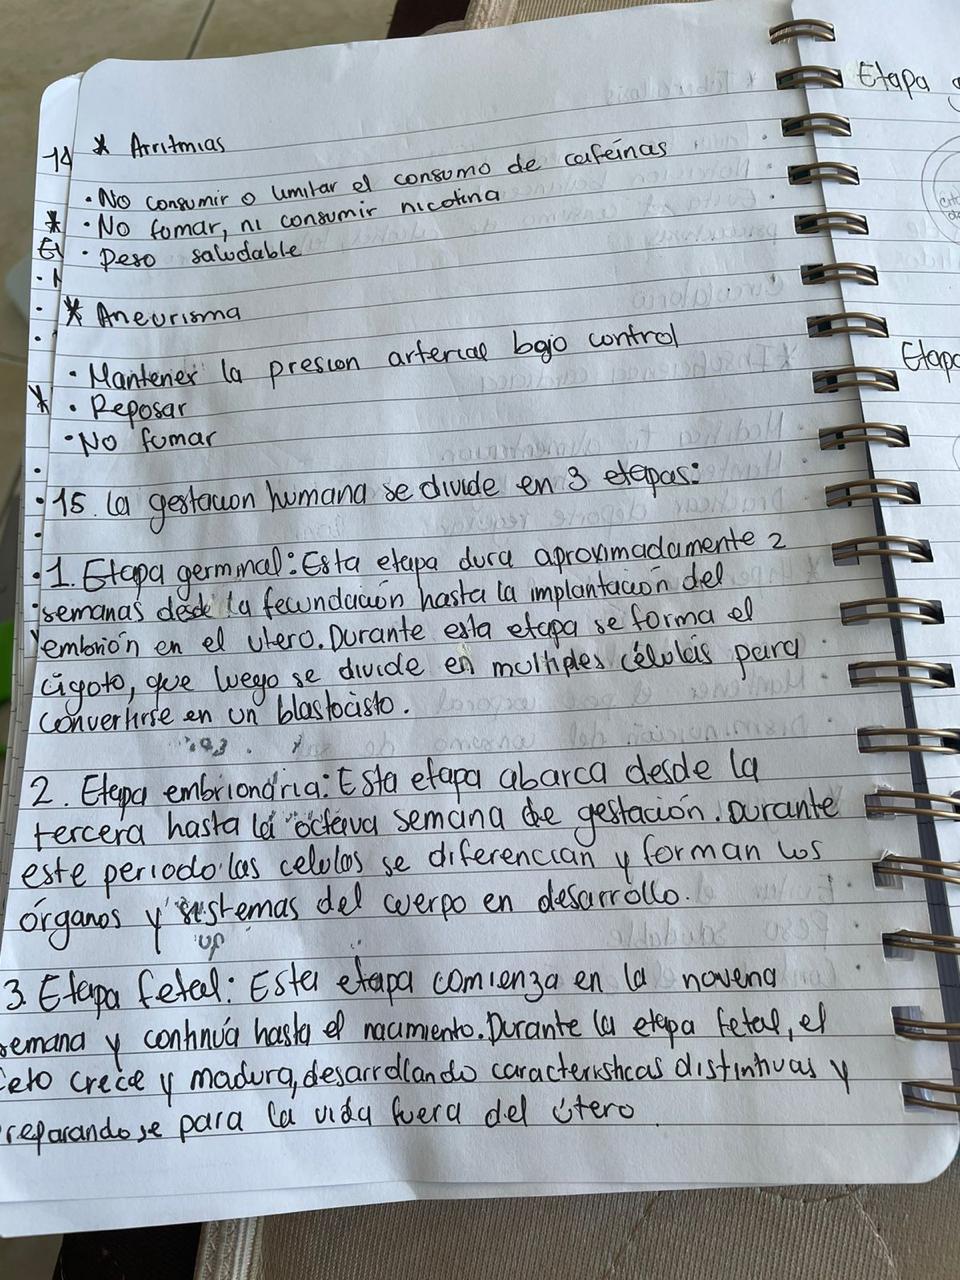 * Arritmias
• No consumir o limitar el consumo de cafeínas
• No fumar, ni consumir nicotina
• Peso saludable
* Aneurisma
• Mantener la presion arterial bajo control
• Reposar
• No fumar
15. La gestacion humana se divide en 3 etapas:
1. Etapa germinal: Esta etapa dura aproximadamente 2
semanas desde la fecundación hasta la implantación del
embrión en el utero. Durante esta etapa se forma el
cigoto, que luego se divide en multiples células para
convertirse en un blastocisto.
2. Etapa embriondria: Esta etapa abarca desde la
tercera hasta la octava semana de gestación. Durante
este periodo las celulas se diferencian y forman los
órganos y sistemas del cuerpo en desarrollo.
3. Etapa fetal: Esta etapa comienza en la novena
semana y continúa hasta el nacimiento. Durante la etapa fetal, el
feto crece y madura, desarrollando caracteristicas distintivas y
preparandose para la vida fuera del útero.
14
Etapa
Etapa